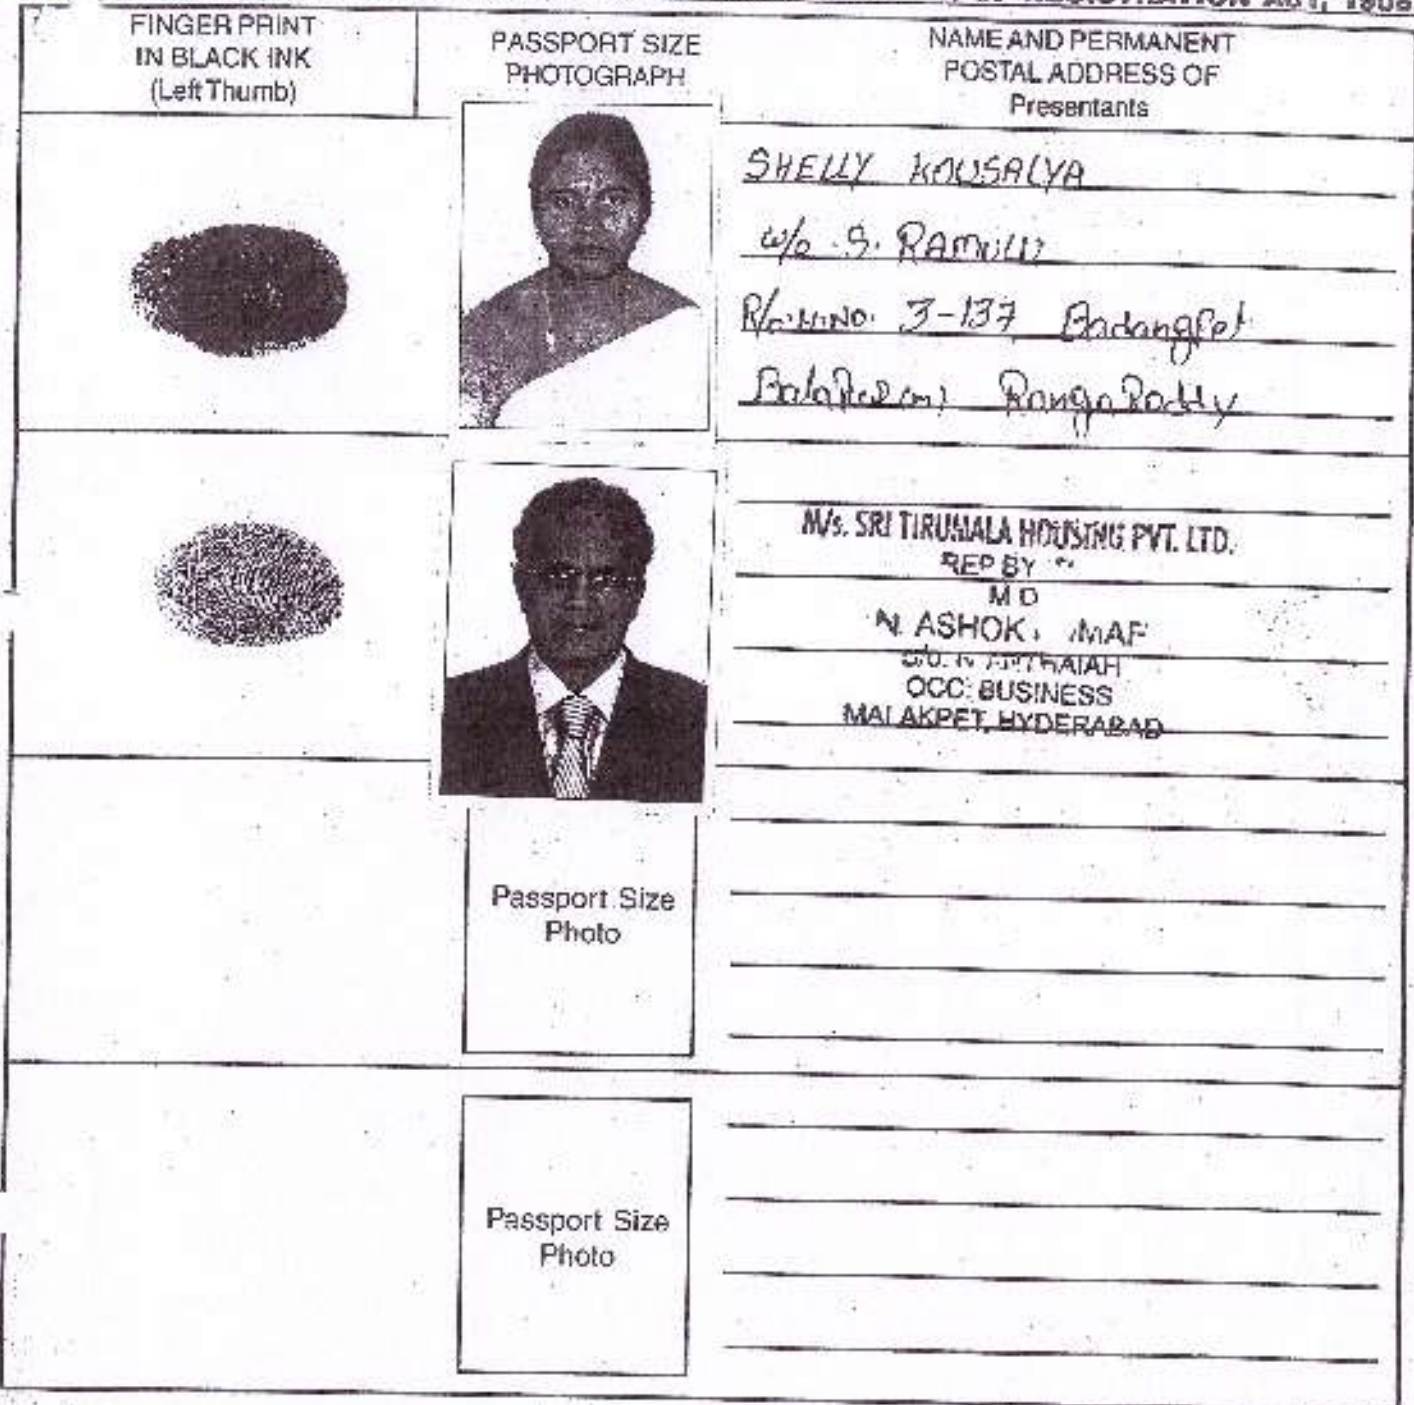 REGISTRATION ACT, 1908
FINGER PRINT
IN BLACK INK
(Left Thumb)
PASSPORT SIZE
PHOTOGRAPH
NAME AND PERMANENT
POSTAL ADDRESS OF
Presentants
SHELLY KOUSALYA
W/o. S. RAMULU
R/o. H.NO. 3-137 Badangpet
Ranga Reddy
M/s. SRI TIRUMALA HOUSING PVT. LTD.
REP BY
M D
N. ASHOK
S/O. N
OCC: BUSINESS
MALAKPET, HYDERABAD
Passport Size
Photo
Passport Size
Photo